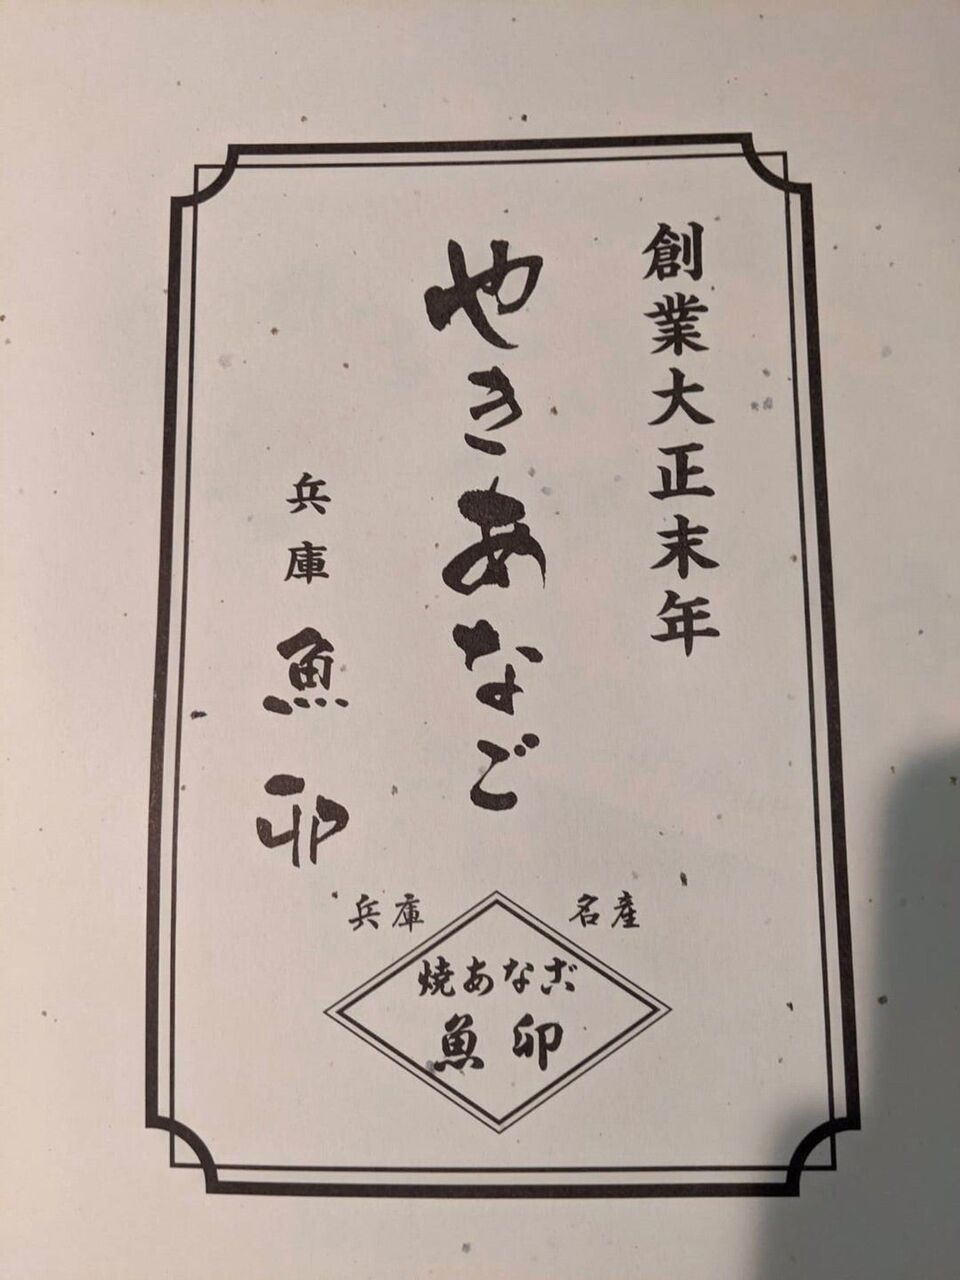 創業大正末年
やきあなご
兵庫 魚卯
兵庫 名産
焼あなご
魚卯